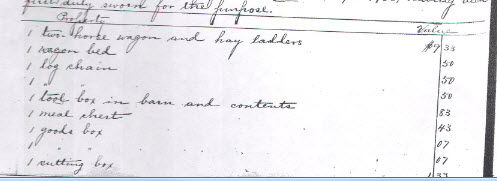 first duly sworn for the purpose.
Property Value
1 two horse wagon and hay ladders $9 33
1 wagon bed 50
1 log chain 50
1 " " 50
1 tool box in barn and contents 83
1 meal chest 43
1 goods box 07
1 " " 07
1 cutting box 33